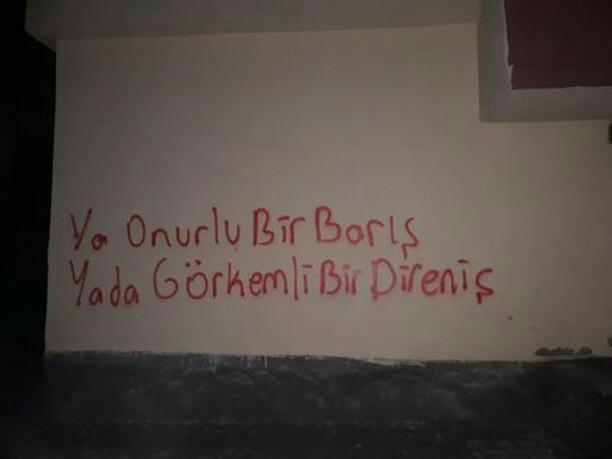 Ya Onurlu Bir Barış
Yada Görkemli Bir Direniş